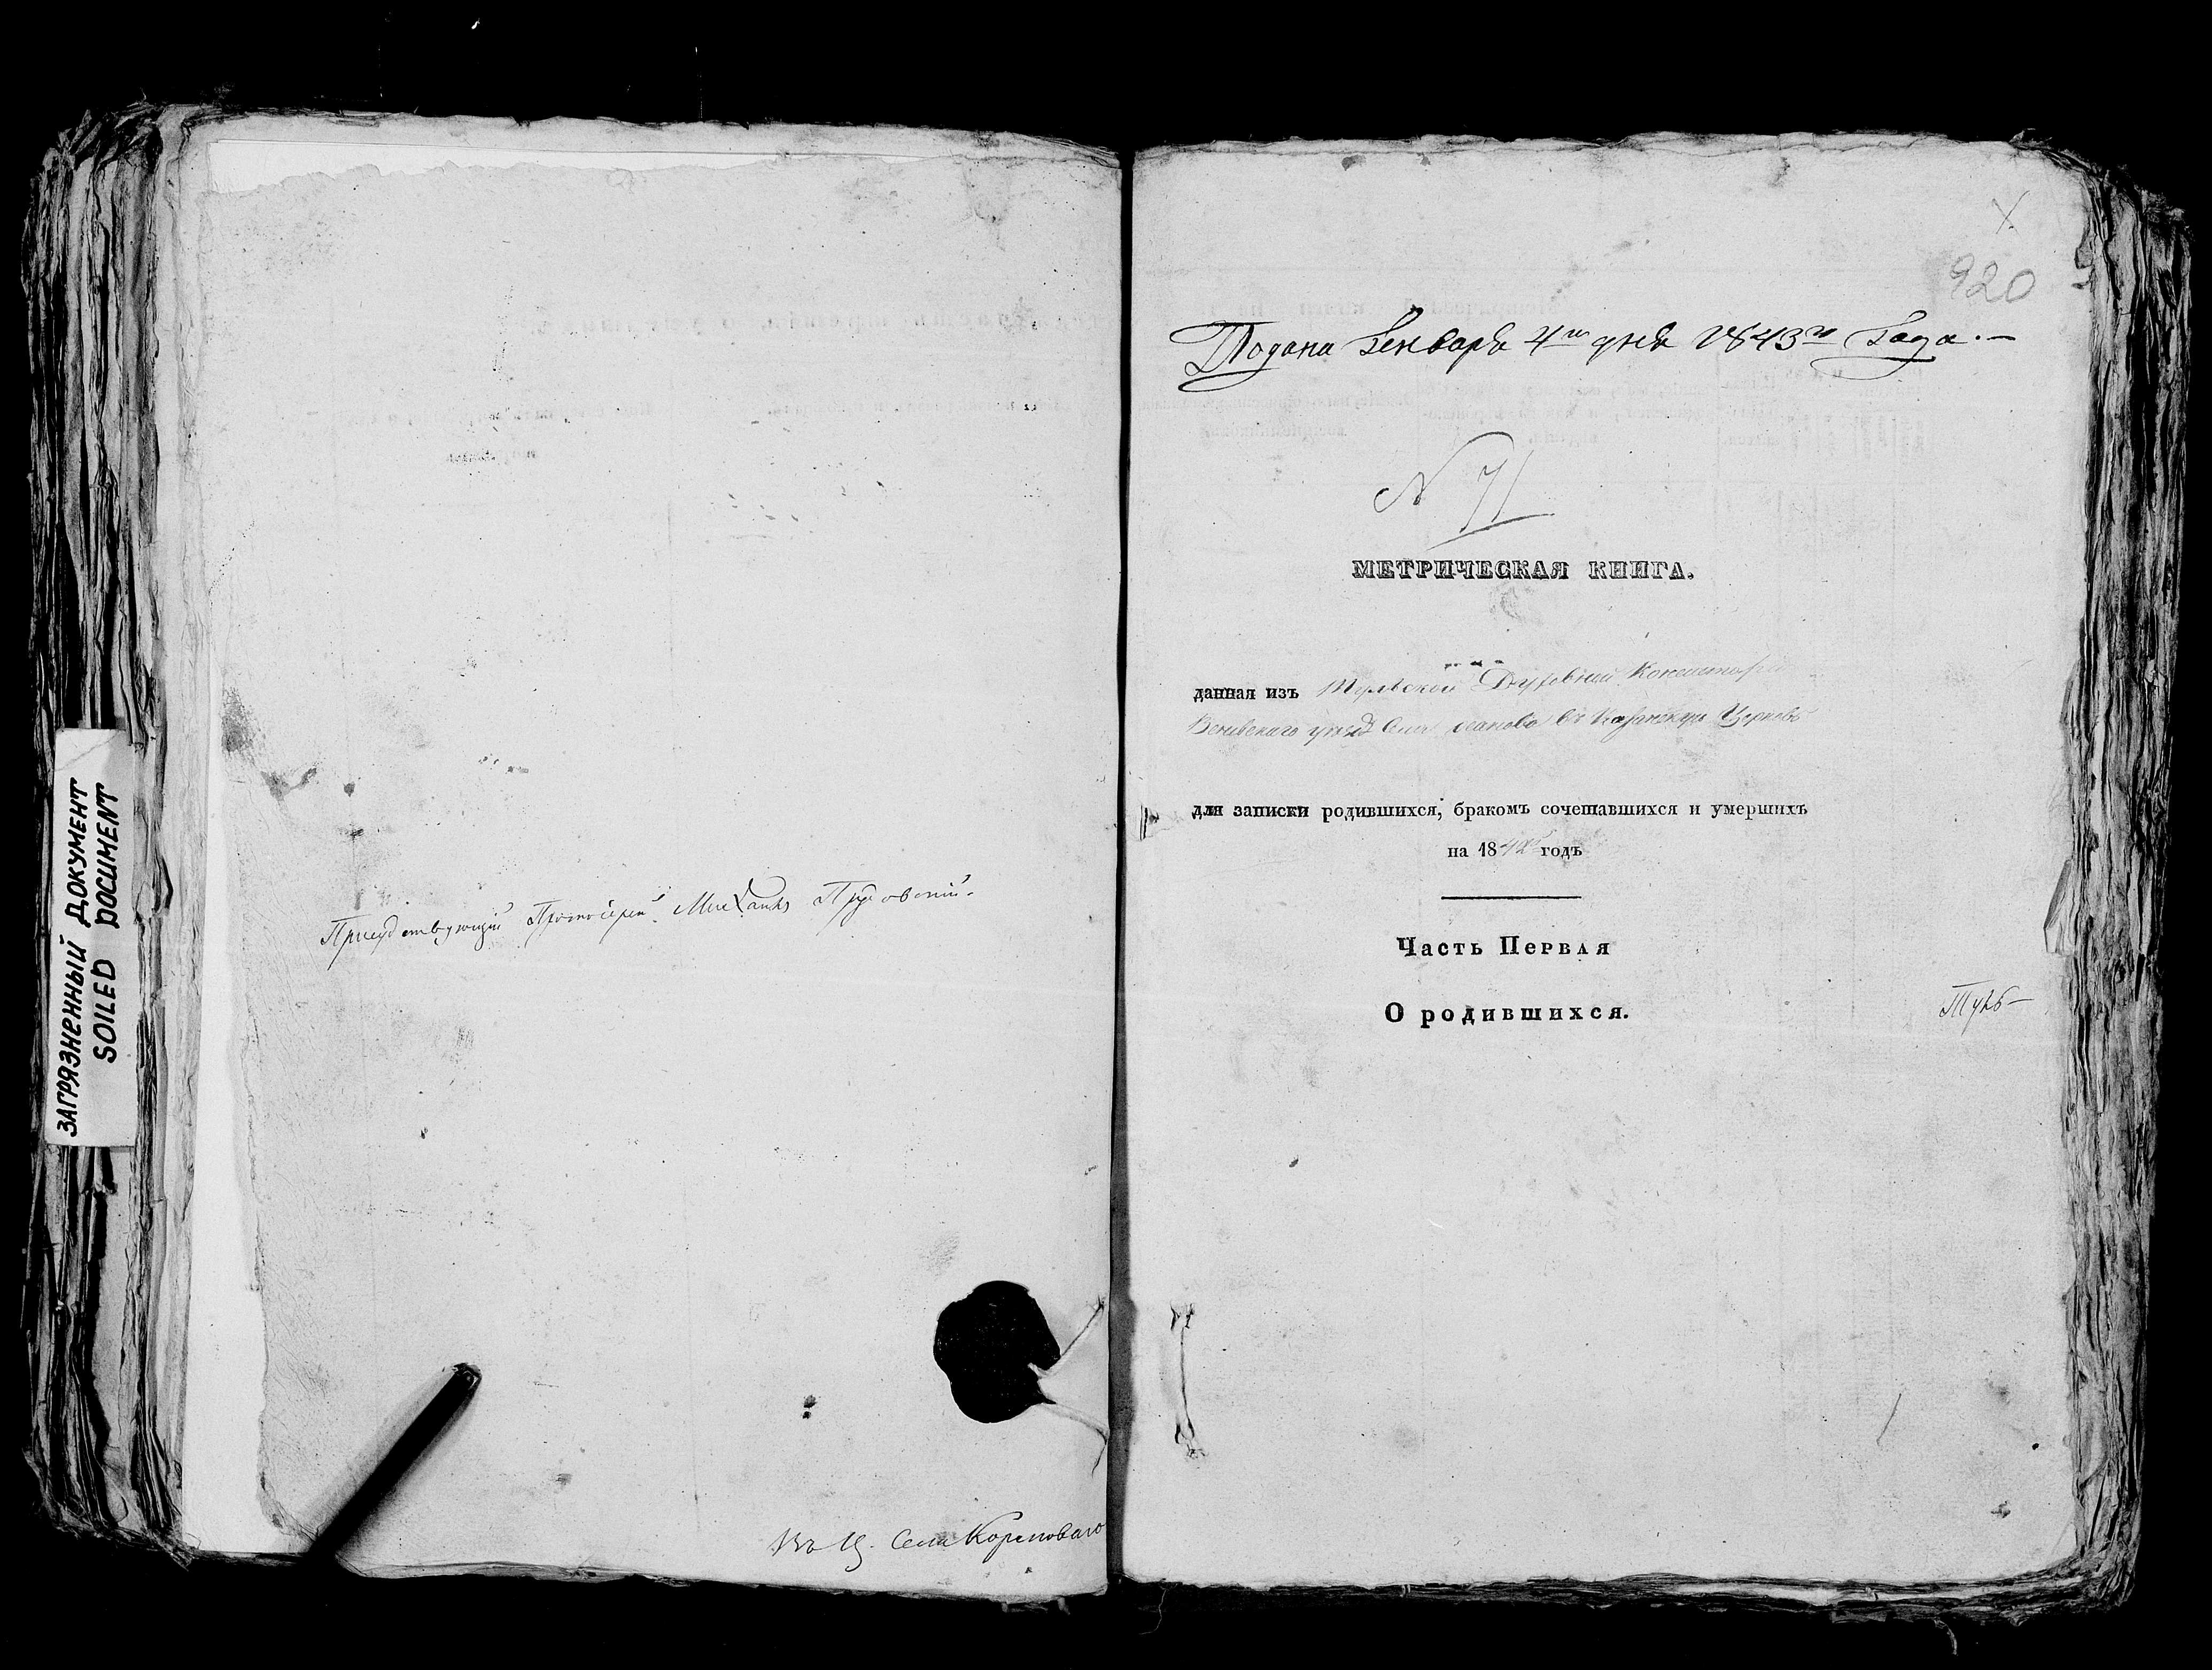 ЗАГРЯЗНЕННЫЙ ДОКУМЕНТ
SOILED DOCUMENT
Присудствующій Протоіерей Михаилъ
Въ Ц. Села
920
Подана Генваря 4го дня 1843го Года.—
N 71
МЕТРИЧЕСКАЯ КНИГА.
данная изъ Тульской Духовной Консисторіи
Веневскаго уѣзда въ Казанскую Церковь
для записки родившихся, бракомъ сочетавшихся и умершихъ
на 1842 годъ
Часть Первая
О родившихся.